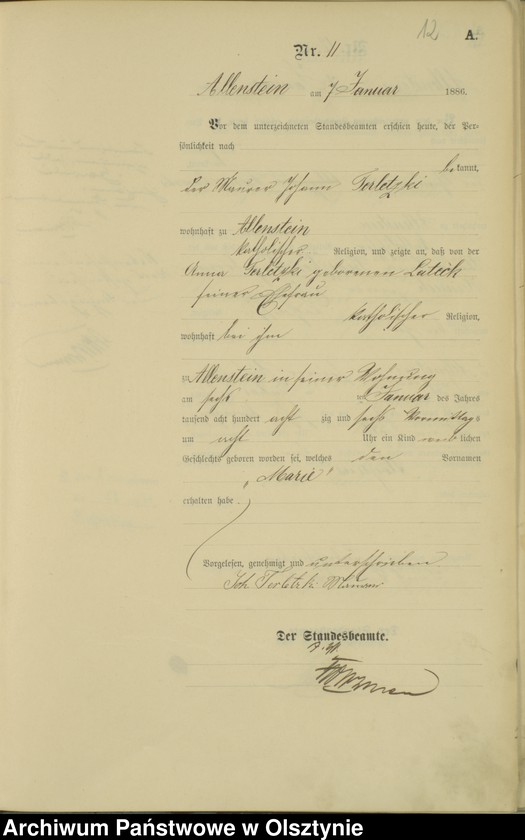 12
A.
Nr. 11
Allenstein am 7 Januar 1886.
Vor dem unterzeichneten Standesbeamten erschien heute, der Per-
sönlichkeit nach
bekannt,
der Maurer Johann Terletzki
wohnhaft zu Allenstein
katholischer Religion, und zeigte an, daß von der
Anna Terletzki geborenen Lateck
seiner Ehefrau
katholischer Religion,
wohnhaft bei ihm
zu Allenstein in seiner Wohnung
am sechs ten Januar des Jahres
tausend acht hundert acht zig und sechs Vormittags
um acht Uhr ein Kind weiblichen
Geschlechts geboren worden sei, welches den Vornamen
„Marie"
erhalten habe.
Vorgelesen, genehmigt und unterschrieben
Joh. Terletzk. Maurer
Der Standesbeamte.
Archiwum Państwowe w Olsztynie